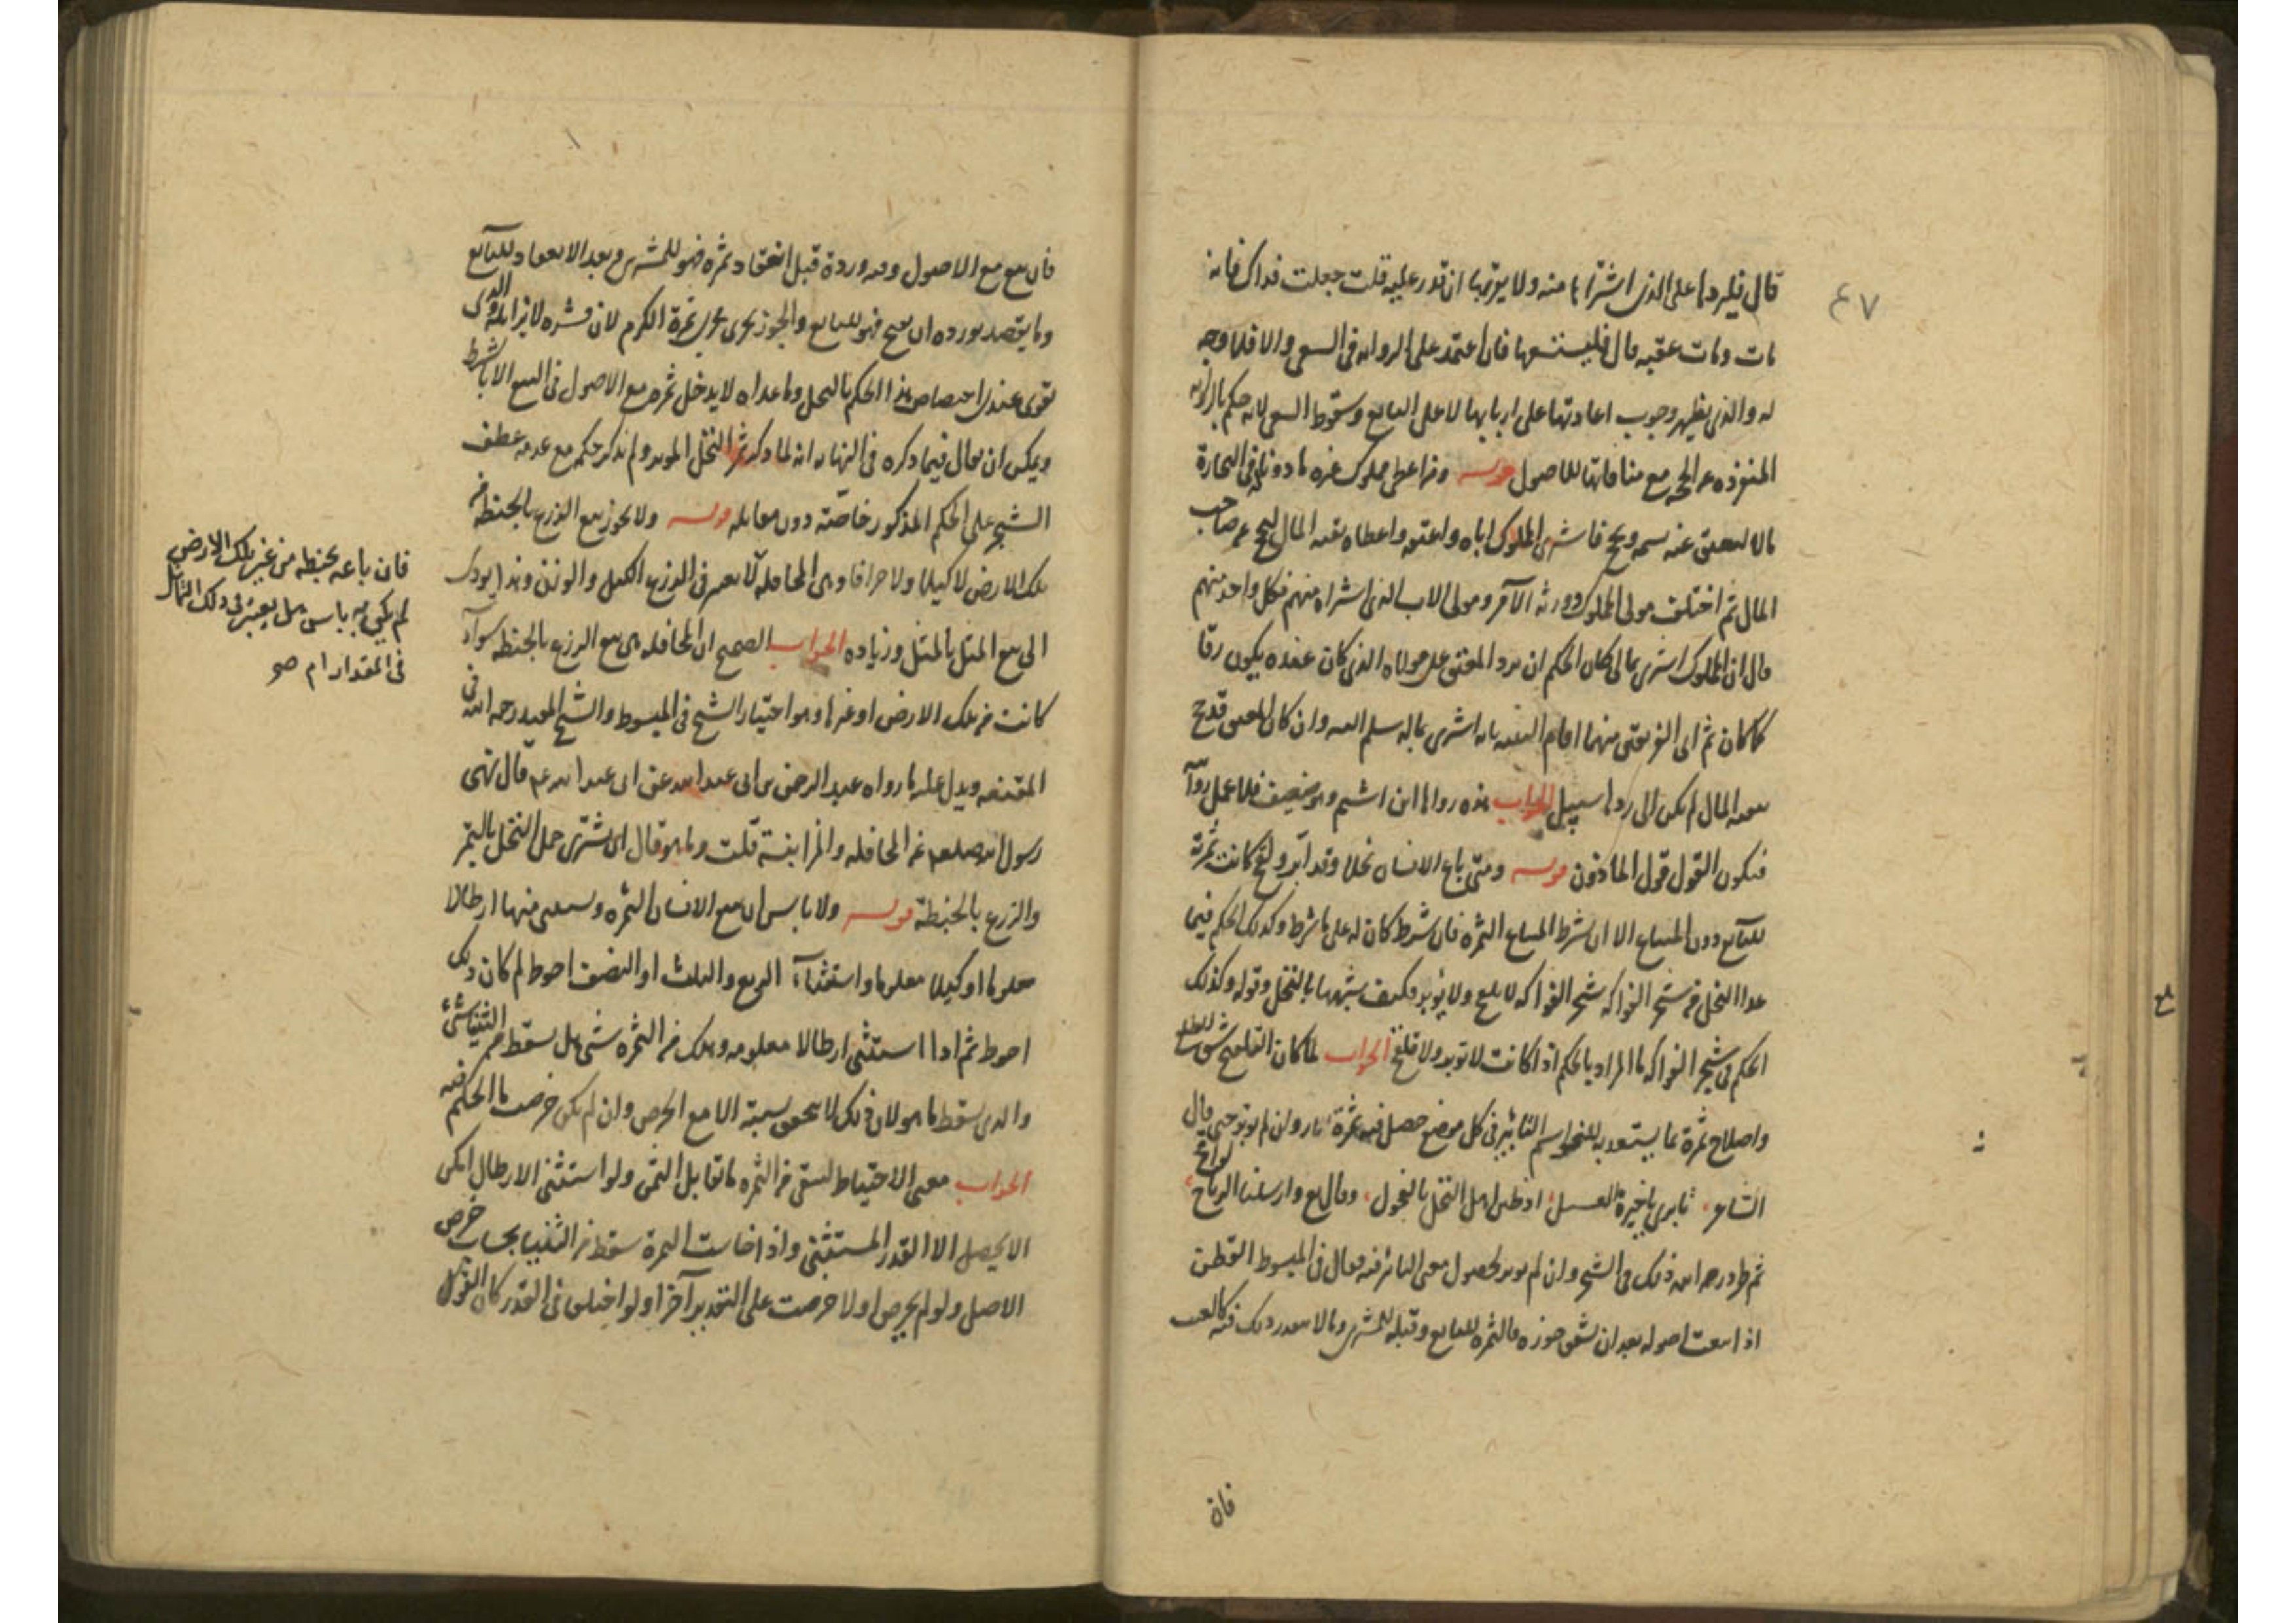 ٤٧
قال فليردها على الذي اشتراها منه ولا يقربها ان قدر عليه قلت جعلت فداك فانه
مات ومات عقبه قال فليستسعها فان اعتمد على الرواية في السعي والا فما وجه
له والذي يظهر وجوب اعادتها على اربابها لا على البايع وسقوط السعي لانه حكم بالرواية
المنفردة عن الحجة مع منافاتها للاصول قوله ومن اعطى مملوك غيره ماذونا له في التجارة
مالا ليعتق عنه نسمة ويحج فاشترى المملوك اباه واعتقه واعطاه بقية المال ليحج عن صاحب
المال ثم اختلف مولى المملوك وورثة الآمر ومولى الاب الذي اشتراه منهم فكل واحد منهم
قال ان المملوك اشترى بمالي كان الحكم ان يرد المعتق على مولاه الذي كان عنده يكون رقا
كما كان ثم اي الفريقين منهما اقام البينة بانه اشترى بماله سلم اليه وان كان المعتق قد حج
ببقية المال لم يكن الى ردها سبيل الجواب هذه رواها ابن اشيم وهو ضعيف فلا عمل
فيكون القول قول الماذون قوله ومتى باع الانسان نخلا وقد ابر ولقح كانت ثمرته
للبايع دون المبتاع الا ان يشرط المبتاع الثمرة فان شرط كان له على ما شرط وكذلك الحكم فيما
عدا النخل من شجر الفواكه شجر الفواكه لا يلقح ولا يؤبر فكيف شبهها بالنخل وقوله وكذلك
الحكم في شجر الفواكه ما المراد بالحكم اذا كانت لا تؤبر ولا تلقح الجواب لما كان التلقيح
واصلاح ثمرة بما يستعد به للنحو اسم التابير في كل موضع حصل فيه ثمرة وان لم يؤبر حتى قال
الشاعر تابري يا خيرة الفسيل اذ ظن اهل النخل بالفحول وقال تع وارسلنا الرياح لواقح
ثم طرد رحمه الله ذلك في الشجر وان لم يؤبر لحصول معنى التابير فيه فقال في المبسوط القطن
اذا بيعت اصوله بعد ان تشقق جوزه فالثمرة للبايع وقبله للمشتري وما لا يقصد ورده كذلك فيه كالعنب
فان
فان بيع مع الاصول وفيه وردة قبل انعقاد ثمرة فهو للمشتري وبعد الانعقاد للبايع
وما يقصد بورده ان بيع فهو للبايع والجوز يجري مجرى ثمرة الكرم لان قشره لا يزايله والذي
يقوى عندي اختصاص هذا الحكم بالنخل وما عداه لا يدخل ثمره مع الاصول في البيع الا بالشرط
ويمكن ان يقال فيما ذكره في النهاية انه لما ذكر ثمر النخل المؤبر ولم يذكر حكم مع عدمه عطف
الشجر على الحكم المذكور خاصة دون مقابله قوله ولا يجوز بيع الزرع بالحنطة من
تلك الارض لا كيلا ولا جزافا وهي المحاقلة لا يعتبر في الزرع الكيل والوزن وهذا يؤدي
الى بيع المثل بالمثل وزيادة الجواب الصحيح ان المحاقلة هي بيع الزرع بالحنطة سواء
كانت من تلك الارض او غيرها وهو اختيار الشيخ في المبسوط والشيخ المفيد رحمه الله في
المقنعة ويدل عليه ما رواه عبد الرحمن بن ابي عبد الله عن ابي عبد الله ع قال نهى
رسول الله صلعم عن المحاقلة والمزابنة قلت وما هو قال ان يشتري حمل النخل بالتمر
والزرع بالحنطة قوله ولا باس ان يبيع الانسان الثمرة ويستثني منها ارطالا
معلوما او كيلا معلوما واستثناء الربع والثلث او النصف احوط لم كان ذلك
احوط ثم اذا استثنى ارطالا معلومة وهلك من الثمرة شي هل يسقط من الثنيا شي
والذي يسقط ما هو لان ذلك لا يتحقق نسبته الا مع الخرص وان لم يكن خرصت ما الحكم فيه
الجواب معنى الاحتياط لبقي من الثمرة ما تقابل الثمن ولو استثنى الارطال امكن
الا يحصل الا القدر المستثنى واذا خاست الثمرة سقط من الثنيا بحساب خرص
الاصل ولو لم يخرص اولا خرصت على التقدير آخرا ولو اختلفا في القدر كان القول
فان باعه بحنطة من غير تلك الارض
لم يكن به باس هل يعتبر في ذلك التماثل
في المقدار ام